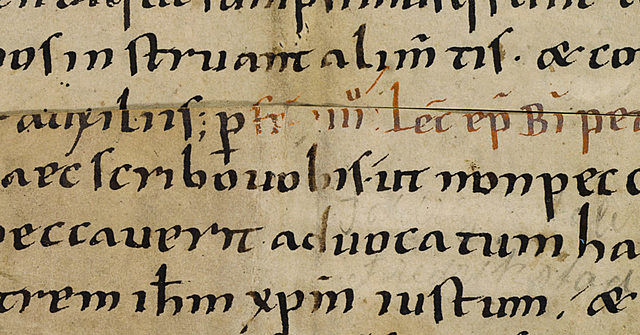 os instruant alim̄tis. & co
auxiliis; p̱ fr̄ iiii Lec̄ ep̄ Bī pet
aec scribo uobis. ut non pecc
peccauerit aduocatum ha
trem ih̄m xp̄m iustum. &